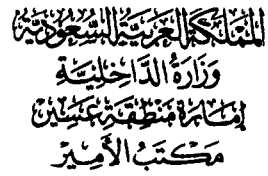 المملكة العربية السعودية
وزارة الداخلية
إمارة منطقة عسير
مكتب الأمير